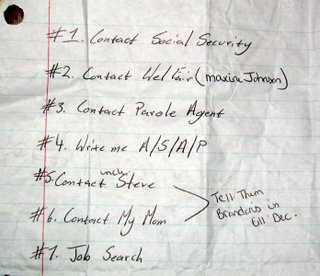 #1. Contact Social Security
#2. Contact Welfair (maxine Johnson)
#3. Contact Parole Agent
#4. Write me A/S/A/P
#5. Contact uncle Steve
#6. Contact My Mom
Tell Them
Brandens in
Bill Dec.
#7. Job Search